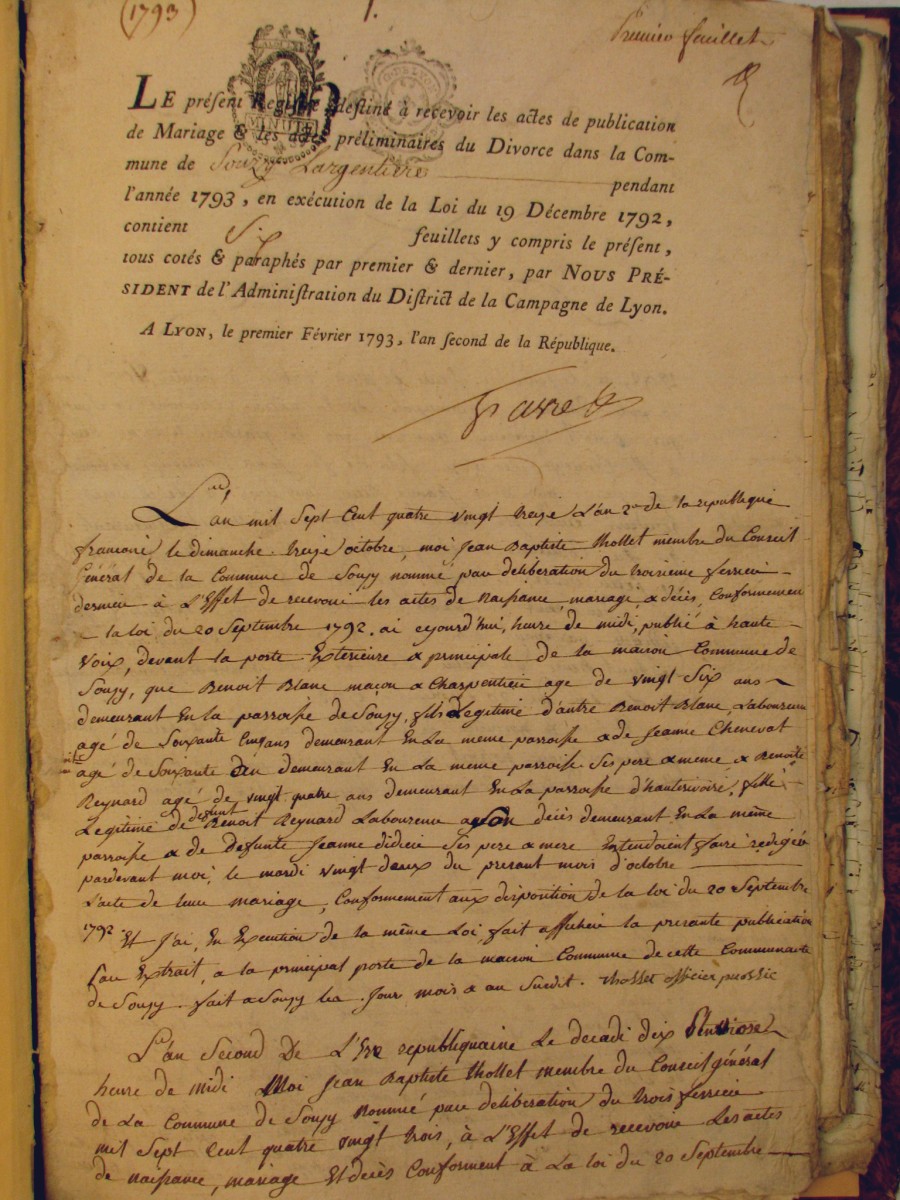 (1793)
1.
Premier feuillet
LE préſent Regiſtre deſtiné à recevoir les actes de publication
de Mariage & les actes préliminaires du Divorce dans la Com-
mune de Souzy Largentiere pendant
l'année 1793, en exécution de la Loi du 19 Décembre 1792,
contient Six feuillets y compris le préſent,
tous cotés & paraphés par premier & dernier, par NOUS PRÉ-
SIDENT de l'Adminiſtration du Diſtrict de la Campagne de Lyon.
A LYON, le premier Février 1793, l'an ſecond de la République.
MINUTE
L'an mil Sept Cent quatre vingt treize L'an 2e de la republique
francoise le dimanche treize octobre, moi Jean Baptiste thollet membre du Conseil
Général de la Commune de Souzy nommé par deliberation du troisieme ferrier
dernier à L'Effet de recevoir les actes de naissance mariage & décès, Conformemen
a la loi du 20 Septembre 1792. ai cejourd'hui, heure de midi, publié à haute
voix, devant la porte Exterieure & principale de la maison Commune de
Souzy, que Benoit Blanc maçon & Charpentier age de vingt Six ans
demeurant En la parroisse de Souzy, fils Legitime d'autre Benoit Blanc Laboureur
agé de Soixante Cinq ans demeurant En La meme parroisse & de Jeanne Chenevat
agé de Soixante un demeurant En La meme parroisse Ses pere & meme & Benoite
Reynard agé de vingt quatre ans demeurant En La parroisse d'hauterivoire, fille
Legitime de defunt Benoit Reynard Laboureur a Son décès demeurant En La même
parroisse & de Defunte Jeanne didier Ses pere & mere Entendoient faire redigér
pardevant moi, le mardi vingt deux du presant mois d'octobre
L'acte de leur mariage, Conformement aux disposition de la loi du 20 Septembre
1792. Et J'ai, En Execution de la même Loi, fait afficher la presante publication
par Extrait, a la principal porte de la maison Commune de cette Communauté
de Souzy. fait a Souzy les Jour mois & an Susdit. thollet officier public
L'an Second De L'Ere republiquaine Le decadi dix Pluviose
heure de midi Moi Jean Baptiste thollet membre du Conseil général
de La Commune de Souzy Nommé par deliberation du trois ferrier
mil Sept Cent quatre vingt trois, à L'Effet de recevoir Les actes
de naissance, mariage Et décès Conforment à La loi du 20 Septembre